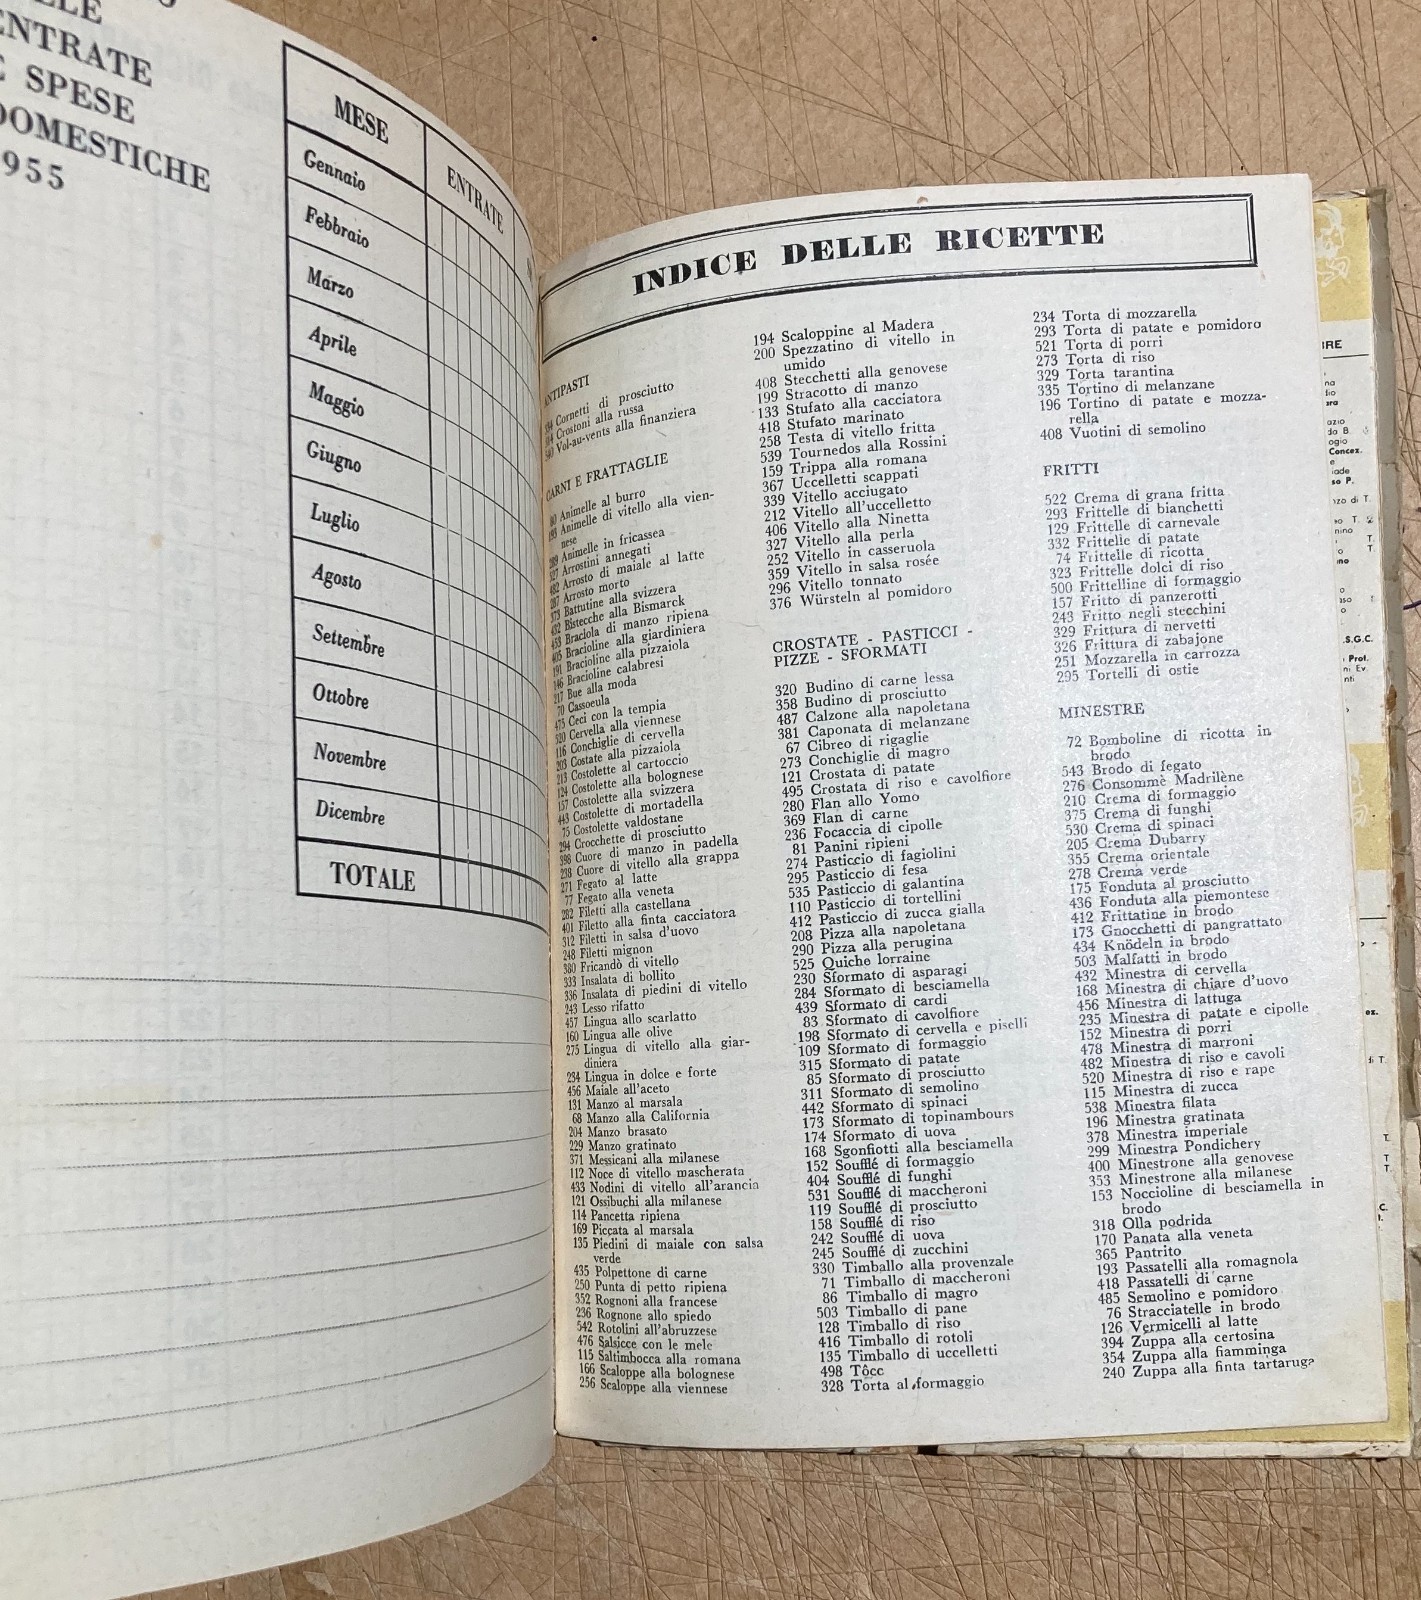 ENTRATE
SPESE
DOMESTICHE
955
MESE
ENTRATE
Gennaio
Febbraio
Marzo
Aprile
Maggio
Giugno
Luglio
Agosto
Settembre
Ottobre
Novembre
Dicembre
TOTALE
INDICE DELLE RICETTE
ANTIPASTI
Cornetti di prosciutto
Crostoni alla russa
Vol-au-vents alla finanziera
CARNI E FRATTAGLIE
Animelle al burro
Animelle di vitello alla vien-
nese
Animelle in fricassea
Arrostini annegati
Arrosto di maiale al latte
Arrosto morto
Battutine alla svizzera
Bistecche alla Bismarck
Braciola di manzo ripiena
Bracioline alla giardiniera
Bracioline alla pizzaiola
Bracioline calabresi
217 Bue alla moda
70 Cassoeula
475 Ceci con la tempia
520 Cervella alla viennese
116 Conchiglie di cervella
203 Costate alla pizzaiola
213 Costolette al cartoccio
124 Costolette alla bolognese
157 Costolette alla svizzera
443 Costolette di mortadella
75 Costolette valdostane
294 Crocchette di prosciutto
398 Cuore di manzo in padella
238 Cuore di vitello alla grappa
271 Fegato al latte
77 Fegato alla veneta
282 Filetti alla castellana
401 Filetto alla finta cacciatora
312 Filetti in salsa d'uovo
248 Filetti mignon
380 Fricandò di vitello
333 Insalata di bollito
336 Insalata di piedini di vitello
243 Lesso rifatto
457 Lingua allo scarlatto
160 Lingua alle olive
275 Lingua di vitello alla giar-
diniera
234 Lingua in dolce e forte
456 Maiale all'aceto
131 Manzo al marsala
68 Manzo alla California
204 Manzo brasato
229 Manzo gratinato
371 Messicani alla milanese
112 Noce di vitello mascherata
433 Nodini di vitello all'arancia
121 Ossibuchi alla milanese
114 Pancetta ripiena
169 Piccata al marsala
135 Piedini di maiale con salsa
verde
435 Polpettone di carne
250 Punta di petto ripiena
352 Rognoni alla francese
236 Rognone allo spiedo
542 Rotolini all'abruzzese
476 Salsicce con le mele
115 Saltimbocca alla romana
166 Scaloppe alla bolognese
256 Scaloppe alla viennese
194 Scaloppine al Madera
200 Spezzatino di vitello in
umido
408 Stecchetti alla genovese
199 Stracotto di manzo
133 Stufato alla cacciatora
418 Stufato marinato
258 Testa di vitello fritta
539 Tournedos alla Rossini
159 Trippa alla romana
367 Uccelletti scappati
339 Vitello acciugato
212 Vitello all'uccelletto
406 Vitello alla Ninetta
327 Vitello alla perla
252 Vitello in casseruola
359 Vitello in salsa rosée
296 Vitello tonnato
376 Würsteln al pomidoro
CROSTATE - PASTICCI -
PIZZE - SFORMATI
320 Budino di carne lessa
358 Budino di prosciutto
487 Calzone alla napoletana
381 Caponata di melanzane
67 Cibreo di rigaglie
273 Conchiglie di magro
121 Crostata di patate
495 Crostata di riso e cavolfiore
280 Flan allo Yomo
369 Flan di carne
236 Focaccia di cipolle
81 Panini ripieni
274 Pasticcio di fagiolini
295 Pasticcio di fesa
535 Pasticcio di galantina
110 Pasticcio di tortellini
412 Pasticcio di zucca gialla
208 Pizza alla napoletana
290 Pizza alla perugina
525 Quiche lorraine
230 Sformato di asparagi
284 Sformato di besciamella
439 Sformato di cardi
83 Sformato di cavolfiore
198 Sformato di cervella e piselli
109 Sformato di formaggio
315 Sformato di patate
85 Sformato di prosciutto
311 Sformato di semolino
442 Sformato di spinaci
173 Sformato di topinambours
174 Sformato di uova
168 Sgonfiotti alla besciamella
152 Soufflé di formaggio
404 Soufflé di funghi
531 Soufflé di maccheroni
119 Soufflé di prosciutto
158 Soufflé di riso
242 Soufflé di uova
245 Soufflé di zucchini
330 Timballo alla provenzale
71 Timballo di maccheroni
86 Timballo di magro
503 Timballo di pane
128 Timballo di riso
416 Timballo di rotoli
135 Timballo di uccelletti
498 Tôcc
328 Torta al formaggio
234 Torta di mozzarella
293 Torta di patate e pomidoro
521 Torta di porri
273 Torta di riso
329 Torta tarantina
335 Tortino di melanzane
196 Tortino di patate e mozza-
rella
408 Vuotini di semolino
FRITTI
522 Crema di grana fritta
293 Frittelle di bianchetti
129 Frittelle di carnevale
332 Frittelle di patate
74 Frittelle di ricotta
323 Frittelle dolci di riso
500 Frittelline di formaggio
157 Fritto di panzerotti
243 Fritto negli stecchini
329 Frittura di nervetti
326 Frittura di zabajone
251 Mozzarella in carrozza
295 Tortelli di ostie
MINESTRE
72 Bomboline di ricotta in
brodo
543 Brodo di fegato
276 Consommè Madrilène
210 Crema di formaggio
375 Crema di funghi
530 Crema di spinaci
205 Crema Dubarry
355 Crema orientale
278 Crema verde
175 Fonduta al prosciutto
436 Fonduta alla piemontese
412 Frittatine in brodo
173 Gnocchetti di pangrattato
434 Knödeln in brodo
503 Malfatti in brodo
432 Minestra di cervella
168 Minestra di chiare d'uovo
456 Minestra di lattuga
235 Minestra di patate e cipolle
152 Minestra di porri
478 Minestra di marroni
482 Minestra di riso e cavoli
520 Minestra di riso e rape
115 Minestra di zucca
538 Minestra filata
196 Minestra gratinata
378 Minestra imperiale
299 Minestra Pondichery
400 Minestrone alla genovese
353 Minestrone alla milanese
153 Noccioline di besciamella in
brodo
318 Olla podrida
170 Panata alla veneta
365 Pantrito
193 Passatelli alla romagnola
418 Passatelli di carne
485 Semolino e pomidoro
76 Stracciatelle in brodo
126 Vermicelli al latte
394 Zuppa alla certosina
354 Zuppa alla fiamminga
240 Zuppa alla finta tartaruga
Concex.
S.G.C.
Prof.